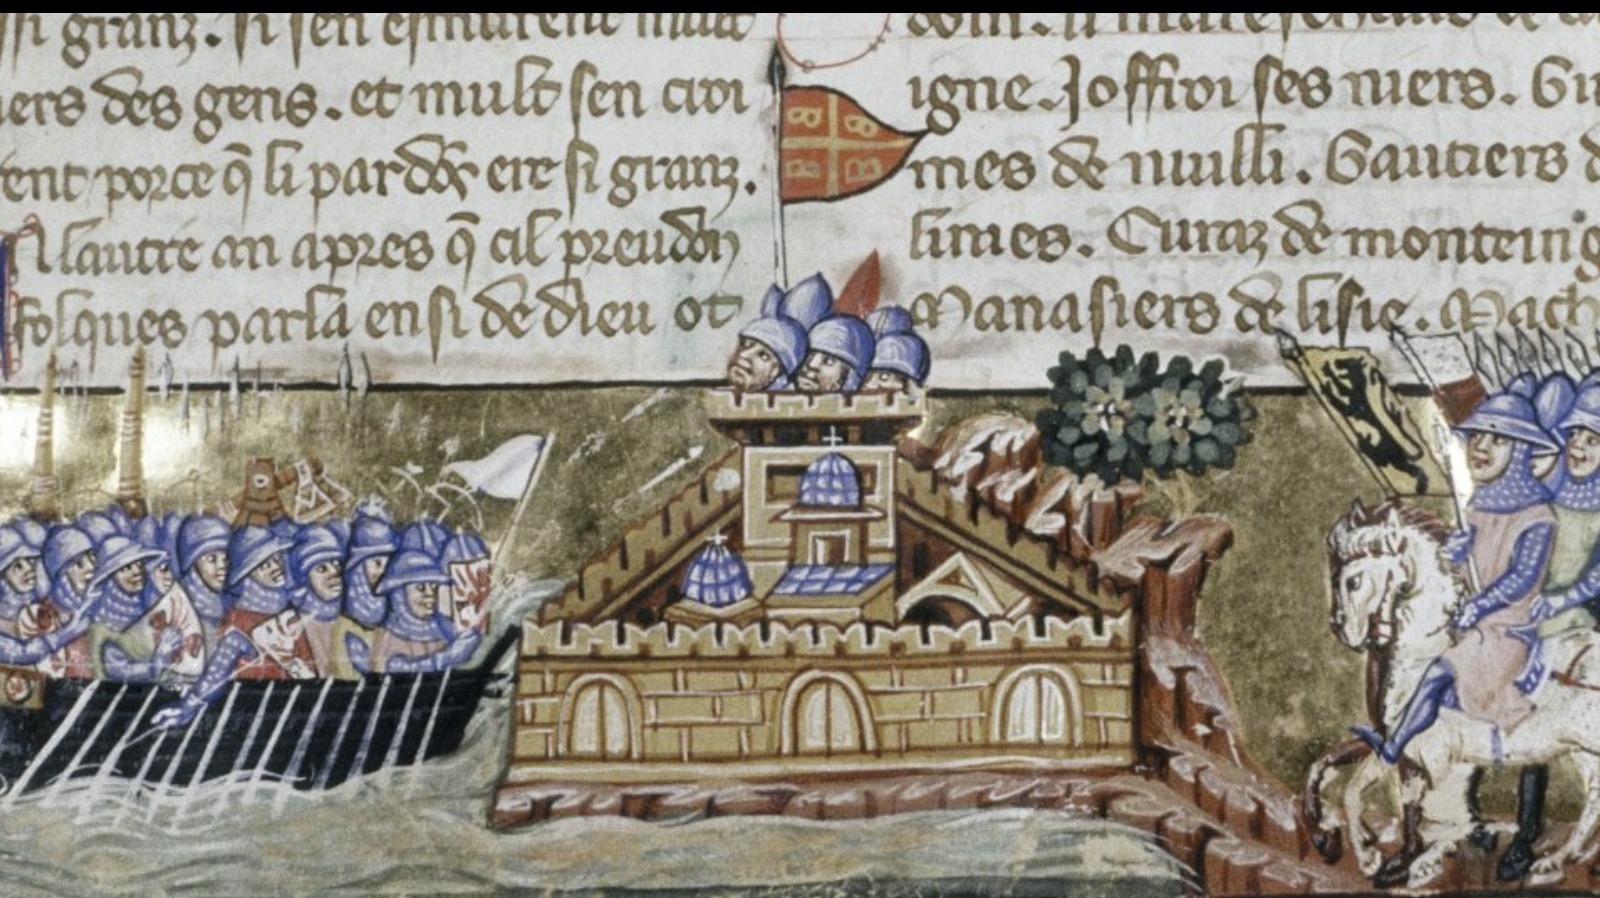 si granz. si sen esmurent mult
ers des gens. et mult sen croi
ent porce q̄ li pardōs ere si granz.
A lautre an apres q̄ cil preudom
folques parla ensi de dieu ot
dom. li mareschaus de
igne. Joffroi ses niers. Gui
mes de nuilli. Gautiers d
linies. Curaz de monteing
Manasiers de lisle. Mach
B B
B B